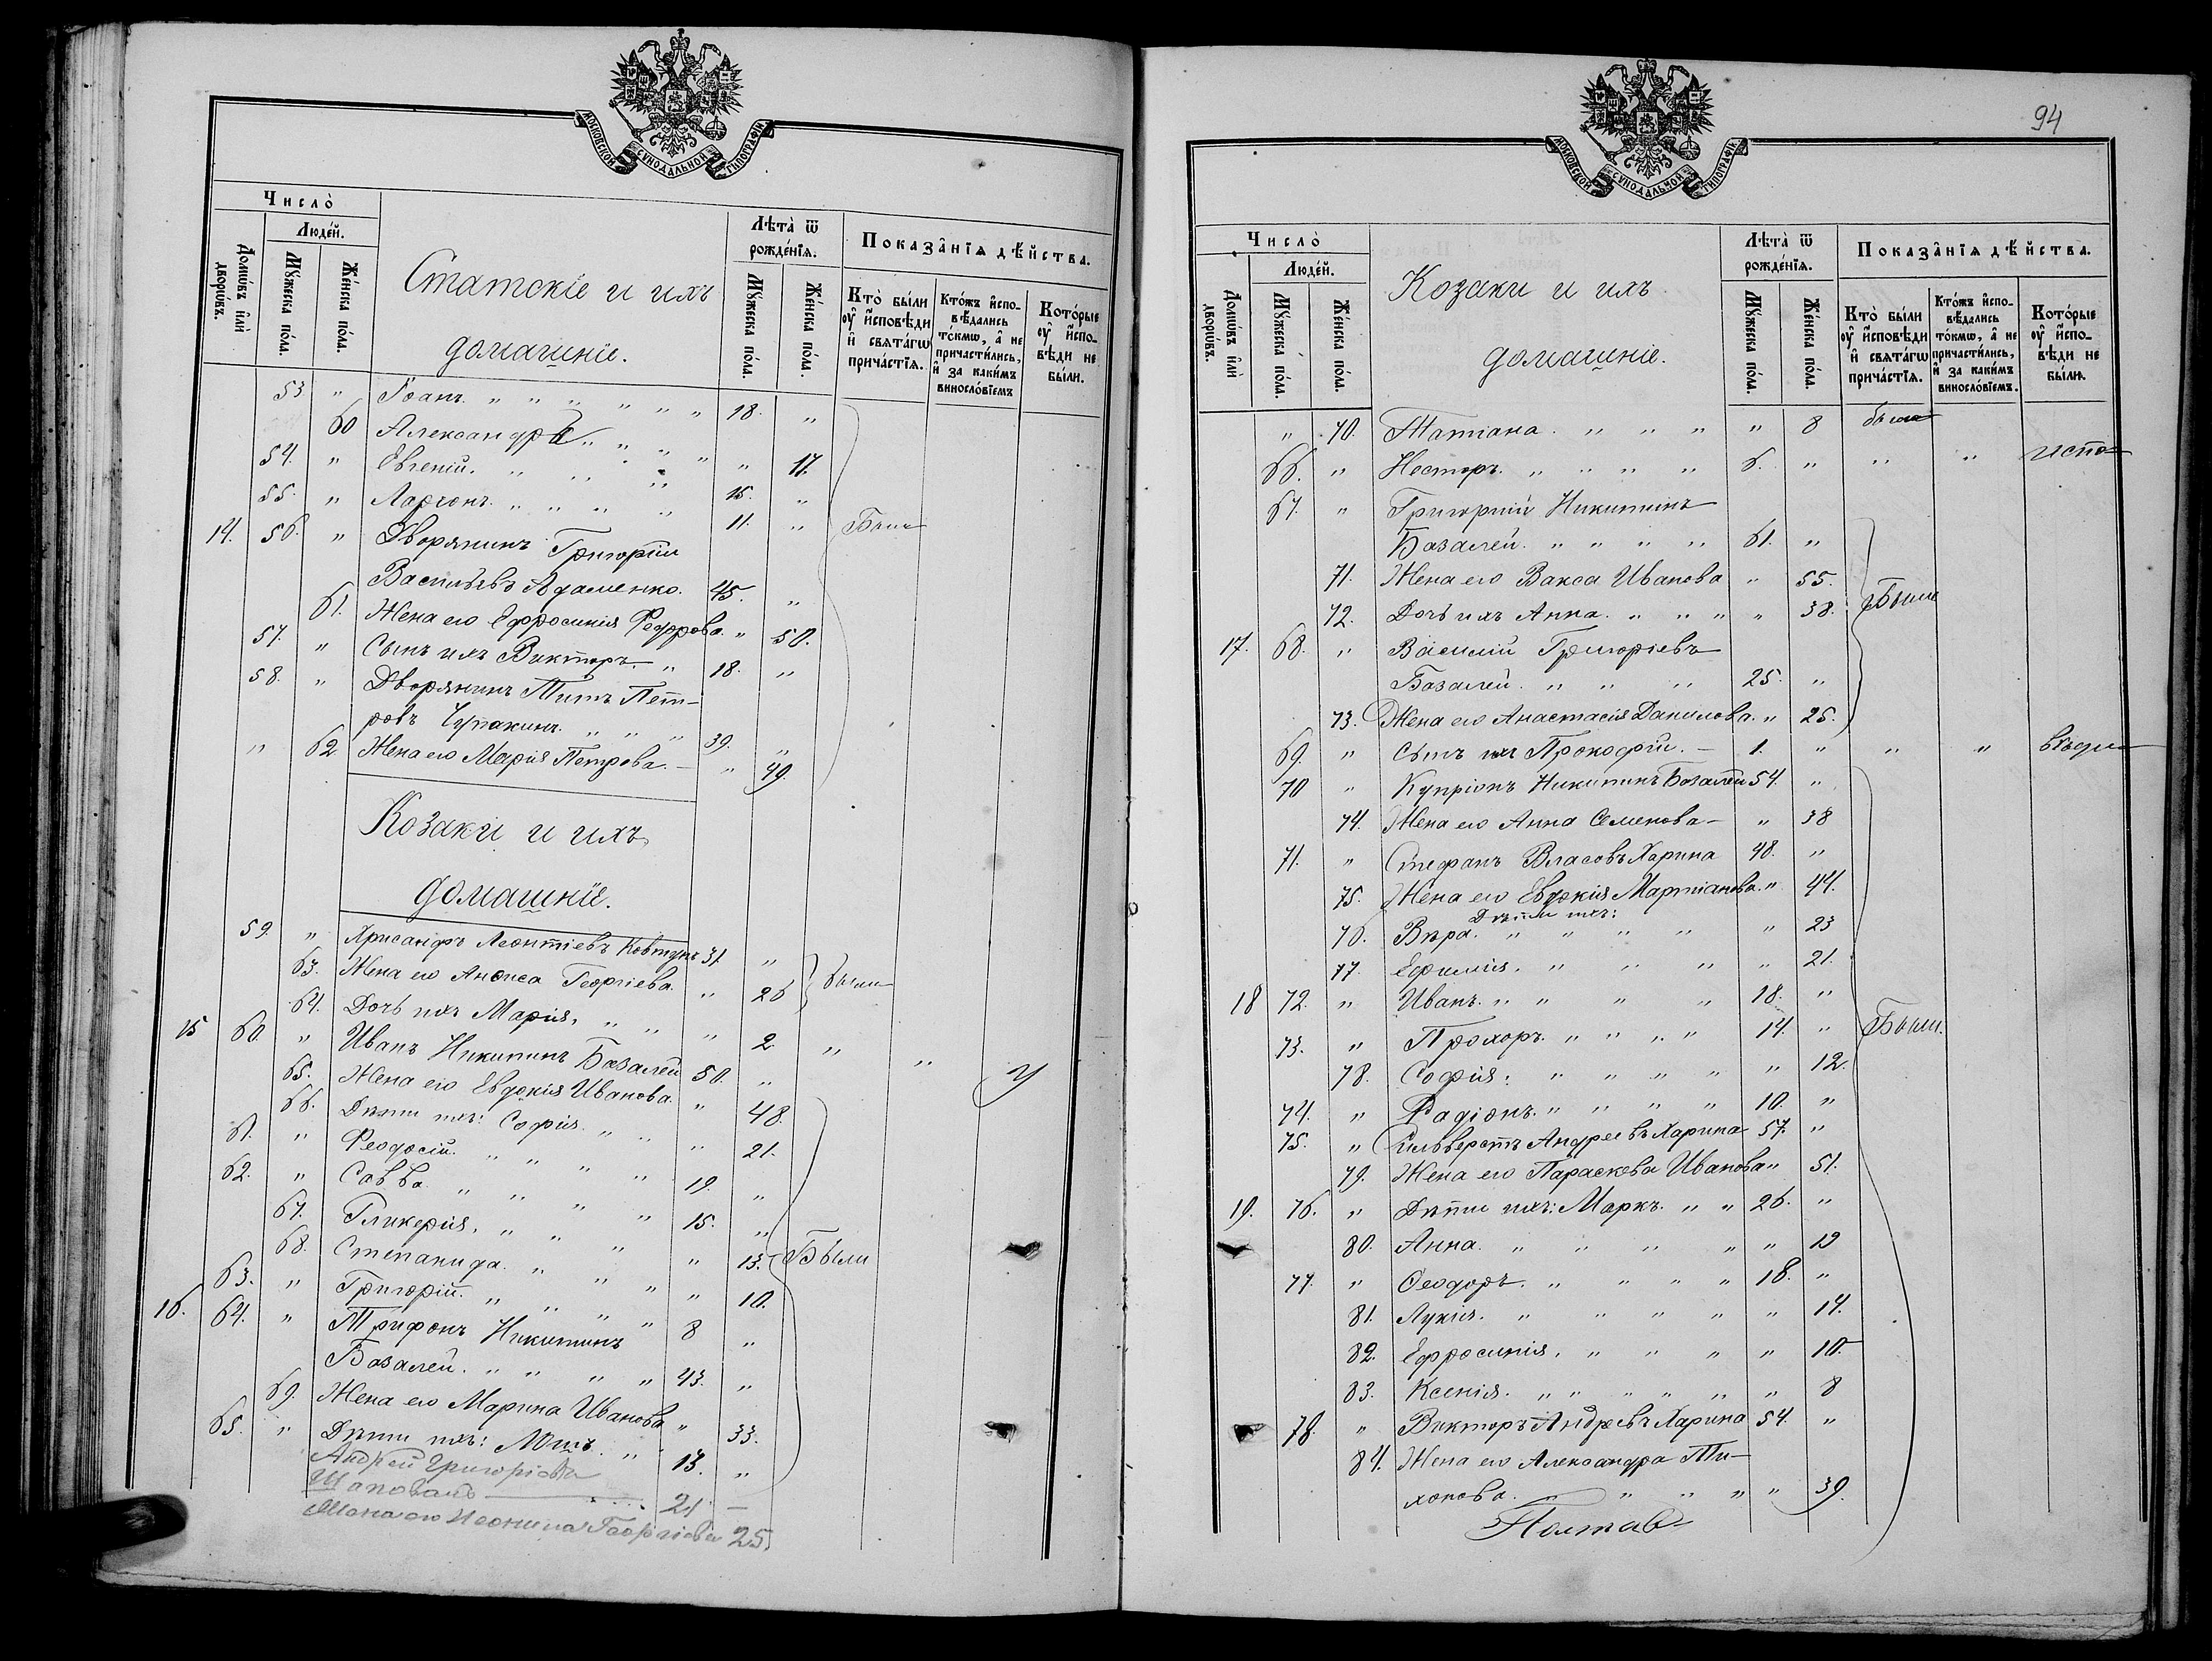 МОСКОВСКОЙ СѴНОДАЛЬНОЙ ТИПОГРАФІИ
Число̀
Домѡ́въ и҆лѝ дворѡ́въ.
Люде́й.
Мꙋ́жеска по́ла.
Же́нска по́ла.
Статскіе и ихъ
домашніе.
Лѣ́та ѿ рожде́нїѧ.
Мꙋ́жеска по́ла.
Же́нска по́ла.
Показа̑нїѧ дѣ́йства.
Кто̀ бы́ли ᲂу҆ и҆сповѣ́ди и҆ свѧта́гѡ прича́стїѧ.
Кто́жъ и҆сповѣ́дались то́кмѡ, а҆ не причасти́лись, и҆ за каки́мъ винослѡ́вїемъ
Кото́рые ᲂу҆ и҆сповѣ́ди не бы́ли.
53 " Іоанъ. " " " " " " 18. "
60 Александра " " " " " 17.
54. " Евгеній. " " " 15. "
55. " Ларіонъ. " " " " 11. "
14. 56. " Дворянинъ Григорій Были
Васильевъ Адаменко. 45. "
61. Жена его Ефросинія Федорова. " 50.
57. " Сынъ ихъ Викторъ. " 18. "
58. " Дворянинъ Титъ Пет-
ровъ Чупакинъ. " " " 39. "
" 62 Жена его Марія Петрова. — " 49.
Козаки и ихъ
домашніе.
59. " Хрисанфъ Леонтіевъ Ковтунъ 31. "
63. Жена его Анфиса Георгіева. " 26 были
64. Дочь ихъ Марія. " " " 2.
15 60. " Иванъ Никитинъ Базалей 50. " " "
65. Жена его Евдокія Иванова. " 48.
66. Дѣти ихъ: Софія. " " " 21.
61. " Феодосій. " " " " 19. "
62. " Савва. " " " " 15. "
67. Гликерія. " " " " 13. Были
68. Степанида. " " " " 10.
63. " Григорій. " " " " 8 "
16. 64. " Трифонъ Никитинъ
Базалей. " " " " 43. "
69. Жена его Марина Иванова " 33.
65. " Дѣти ихъ: " 13. "
Андрей Григоріевъ
Шаповалъ 21 —
Жена его Георгіева 25.
94
МОСКОВСКОЙ СѴНОДАЛЬНОЙ ТИПОГРАФІИ
Число̀
Домѡ́въ и҆лѝ дворѡ́въ.
Люде́й.
Мꙋ́жеска по́ла.
Же́нска по́ла.
Козаки и ихъ
домашніе.
Лѣ́та ѿ рожде́нїѧ.
Мꙋ́жеска по́ла.
Же́нска по́ла.
Показа̑нїѧ дѣ́йства.
Кто̀ бы́ли ᲂу҆ и҆сповѣ́ди и҆ свѧта́гѡ прича́стїѧ.
Кто́жъ и҆сповѣ́дались то́кмѡ, а҆ не причасти́лись, и҆ за каки́мъ винослѡ́вїемъ.
Кото́рые ᲂу҆ и҆сповѣ́ди не бы́ли.
" 70. Татіана. " " " " 8 была
66. " Несторъ. " " " " 6. " " "
67. " Григорій Никитинъ
Базалей. " " " " 61. "
71. Жена его Васса Иванова " 55.
72. Дочь ихъ Анна. " " " " 38. Были
17. 68. " Василій Григоріевъ
Базалей. " " " 25. "
73. Жена его Анастасія Данилова. " 25.
69. " Сынъ ихъ Прокофій. — 1. " " "
70 " Купріонъ Никитинъ Базалей 54. "
74. Жена его Анна Семенова — " 38
71. " Стефанъ Власовъ Харина 48. "
75. Жена его Евдокія Мартіанова. " 44.
Дѣти ихъ:
76. Вѣра. " " " " " 23
77. Ефимія. " " " " 21.
18 72. " Иванъ. " " " " 18. "
73. " Прохоръ. " " " " 14. " Были.
78. Софія. " " " " " 12.
74. " Радіонъ. " " " " 10. "
75. " Сильверстъ Андреевъ Харина 57. "
79. Жена его Параскева Иванова " 51.
19. 76. " Дѣти ихъ: Маркъ. " " 26. "
80. Анна. " " " " " 19
77. " Феодоръ. " " " " 18. "
81. Лукія. " " " " " 14.
82. Ефросинія. " " " " 10.
83. Ксенія. " " " " " " 8
78. " Викторъ Андреевъ Харина 54. "
84. Жена его Александра Ти-
хонова. " " " " 39.
Полтав-